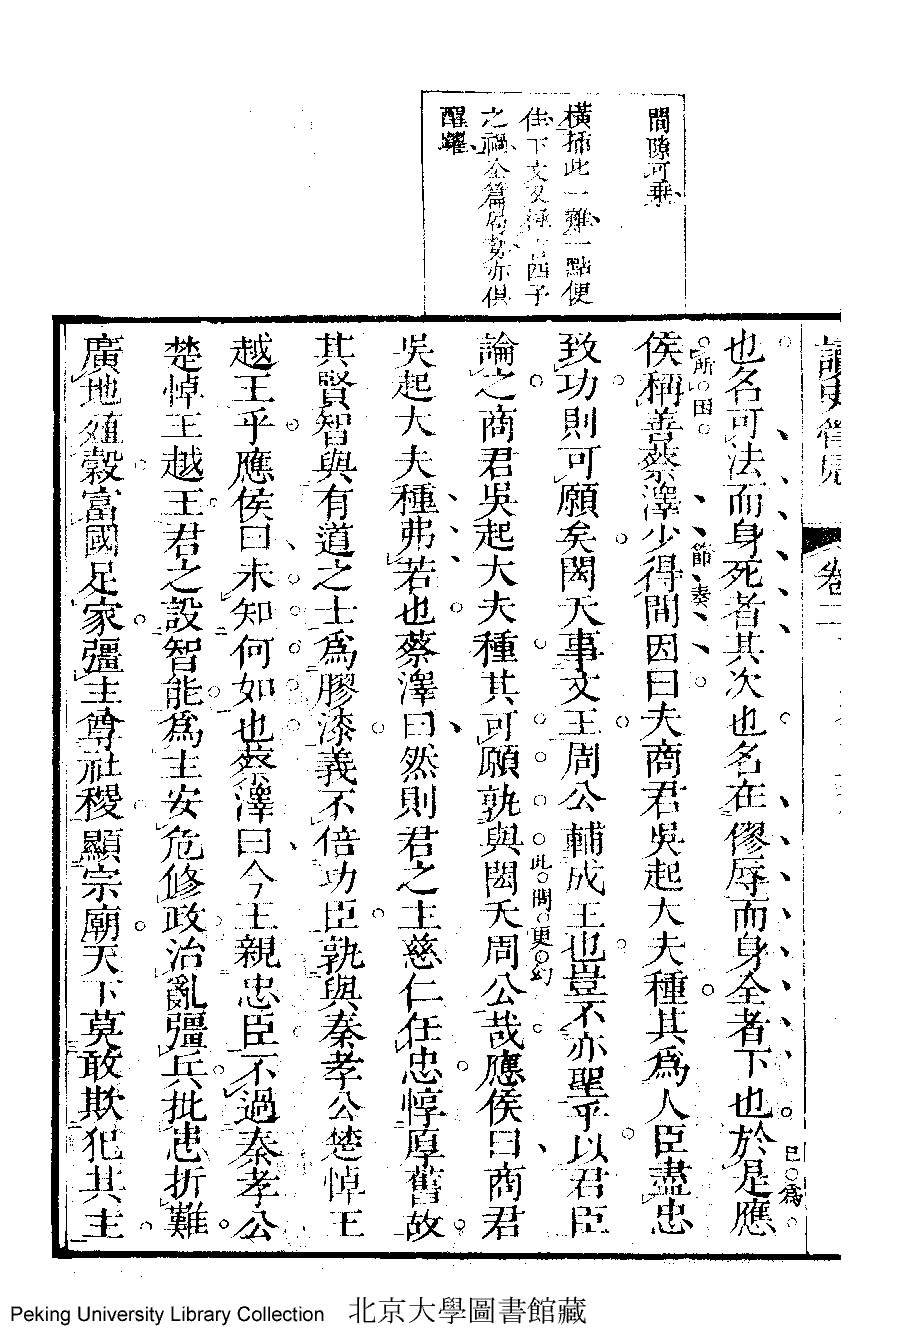 間隙可乗
橫插此一難一點便
佳下文又極言四子
之禍全篇局勢亦俱
醒躍
讀史管見 卷二
也名可法而身死者其次也名在僇辱而身全者下也於是應
已為
侯稱善蔡澤少得間因曰夫商君吳起大夫種其為人臣盡忠
所因
節奏
致功則可願矣閎夭事文王周公輔成王也豈不亦聖乎以君臣
論之商君吳起大夫種其可願孰與閎夭周公哉應侯曰商君
此間更幻
吳起大夫種弗若也蔡澤曰然則君之主慈仁任忠惇厚舊故
其賢智與有道之士為膠漆義不倍功臣孰與秦孝公楚悼王
越王乎應侯曰未知何如也蔡澤曰今主親忠臣不過秦孝公
楚悼王越王君之設智能為主安危修政治亂彊兵批患折難
廣地殖穀富國足家彊主尊社稷顯宗廟天下莫敢欺犯其主
Peking University Library Collection 北京大學圖書館藏